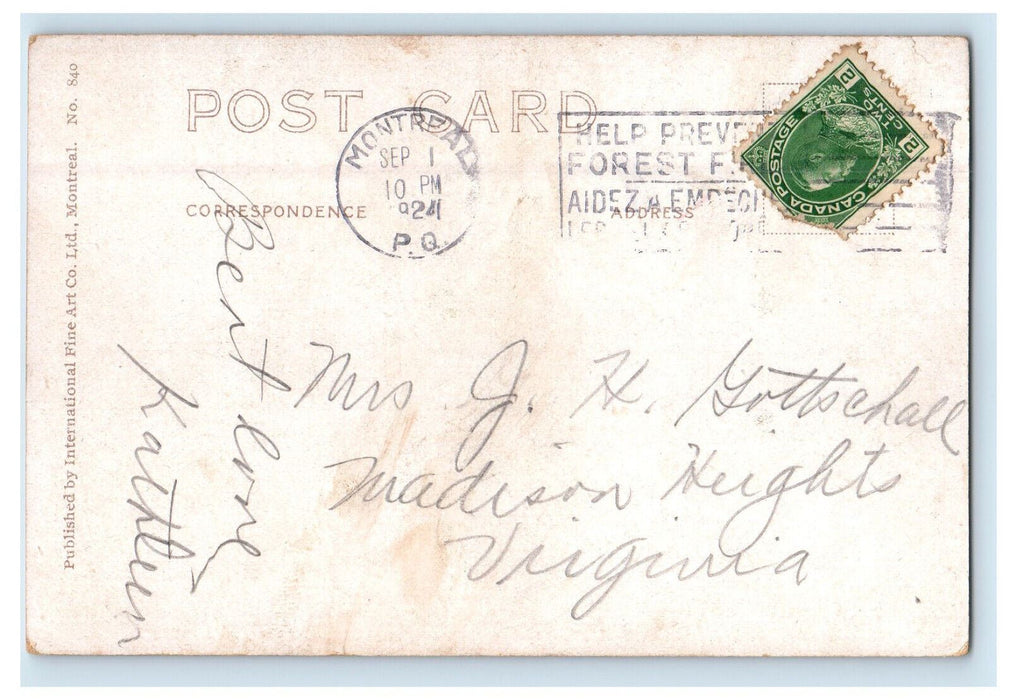 POST CARD
Published by International Fine Art Co. Ltd., Montreal. No. 840
MONTREAL
SEP 1
10 PM
1924
P.Q.
HELP PREVE
FOREST F
AIDEZ A EMPÊC
CANADA POSTAGE
2 TWO CENTS 2
CORRESPONDENCE
ADDRESS
Best love
Kathleen
Mrs J. H. Gottschall
Madison Heights
Virginia